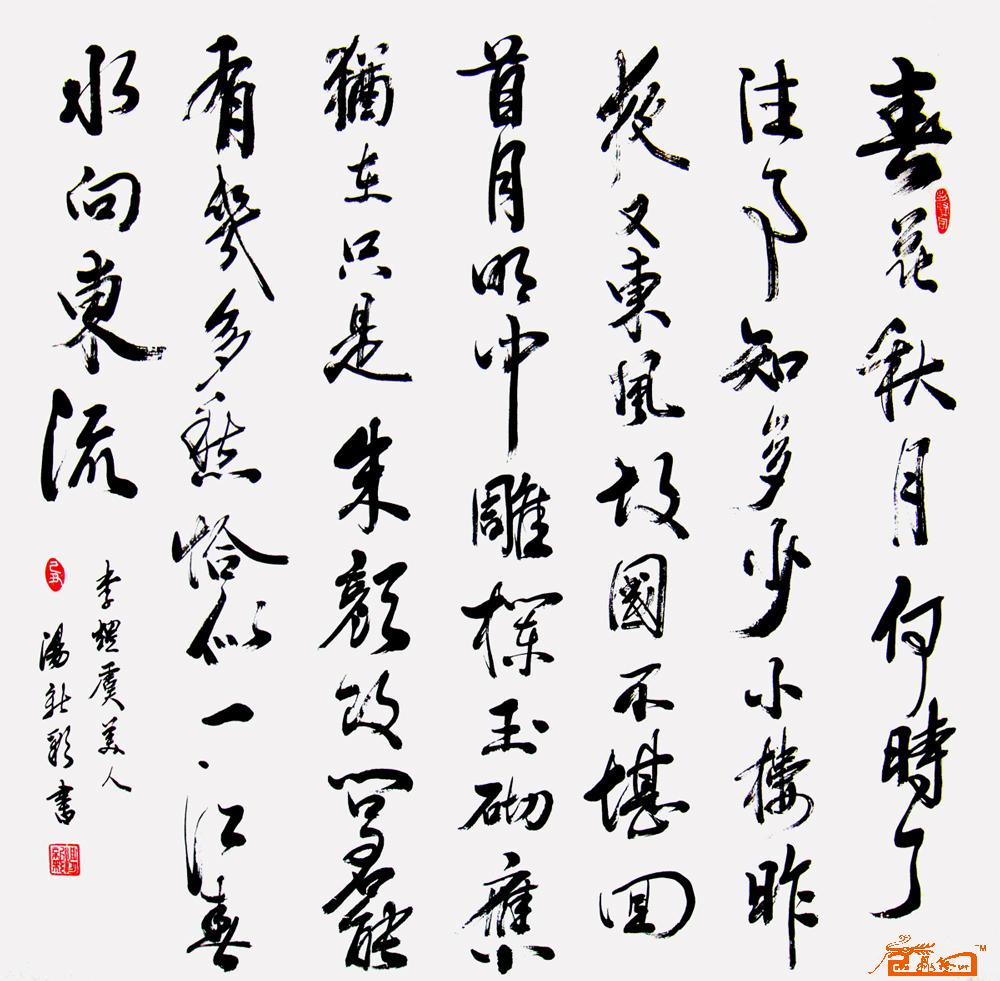 春花秋月何時了
往事知多少小樓昨
夜又東風故國不堪回
首月明中雕欄玉砌應
猶在只是朱顏改問君能
有幾多愁恰似一江春
水向東流
李煜虞美人
己丑
湯新書